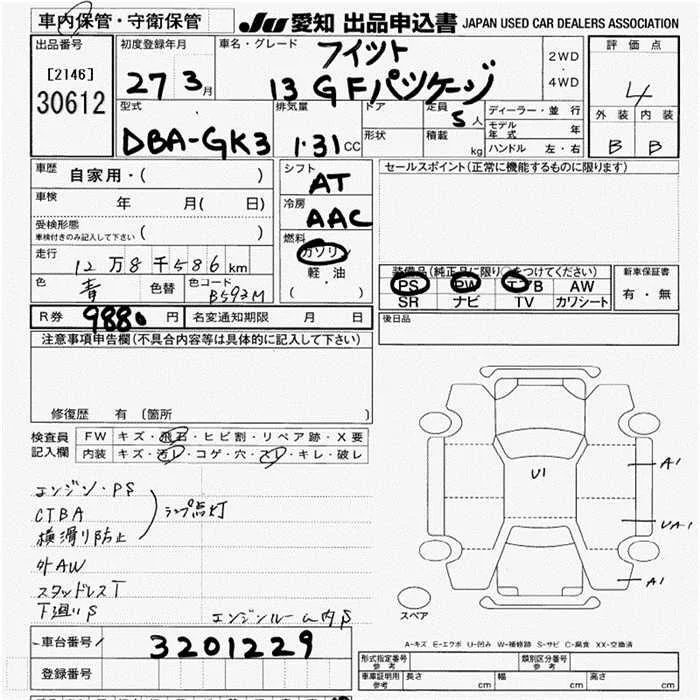 車内保管・守衛保管
JU 愛知 出品申込書 JAPAN USED CAR DEALERS ASSOCIATION
出品番号 初度登録年月 車名・グレード フィット 2WD・4WD 評価点
[2146] 30612 27 3月 13GFパッケージ 4
型式 DBA-GK3 排気量 1.31CC ドア 定員 5人 ディーラー・並行 外装 内装
形状 積載 kg モデル年式 年 B B
ハンドル 左・右
車歴 自家用・( ) シフト AT セールスポイント(正常に機能するものに限ります)
車検 年 月( 日) 冷房 AAC
受検形態 車検付きのみ記入して下さい 燃料 ガソリン・軽油 ( )
走行 12万8千586km
装備品(純正品に限り○をつけてください) 新車保証書
色 青 色替 色コード B593M PS PW エアB AW 有・無
SR ナビ TV カワシート
R券 9880円 名変通知期限 月 日 後日品
注意事項申告欄(不具合内容等は具体的に記入して下さい)
修復歴 有 〔箇所 〕
検査員記入欄 FW キズ・飛石・ヒビ割・リペア跡・X要
内装 キズ・汚レ・コゲ・穴・スレ・キレ・破レ
エンジン・PS
CTBA ランプ点灯
横滑り防止
外AW
スタッドレスT
下廻りS エンジンルーム内S
U1
A1
UA1
A1
スペア
A-キズ E-エクボ U-凹み W-補修跡 S-サビ C-腐食 XX-交換済
車台番号 3201229
登録番号
形式指定番号 参考 類別区分番号 参考
車庫証明用 参考 長さ cm 幅 cm 高さ cm